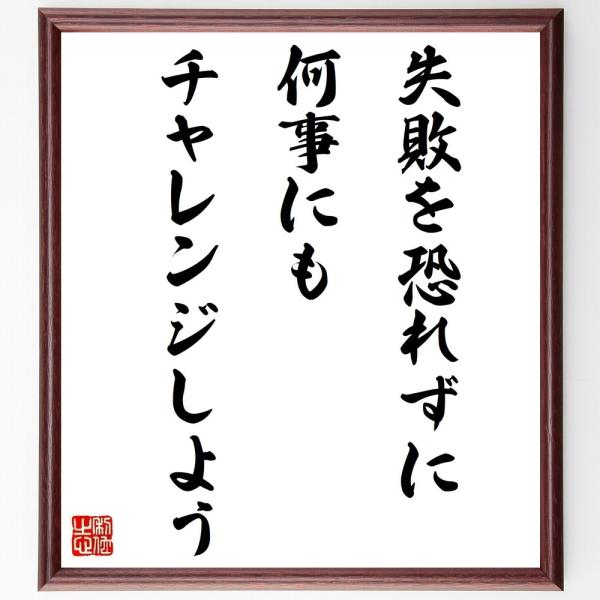 失敗を恐れずに
何事にも
チャレンジしよう